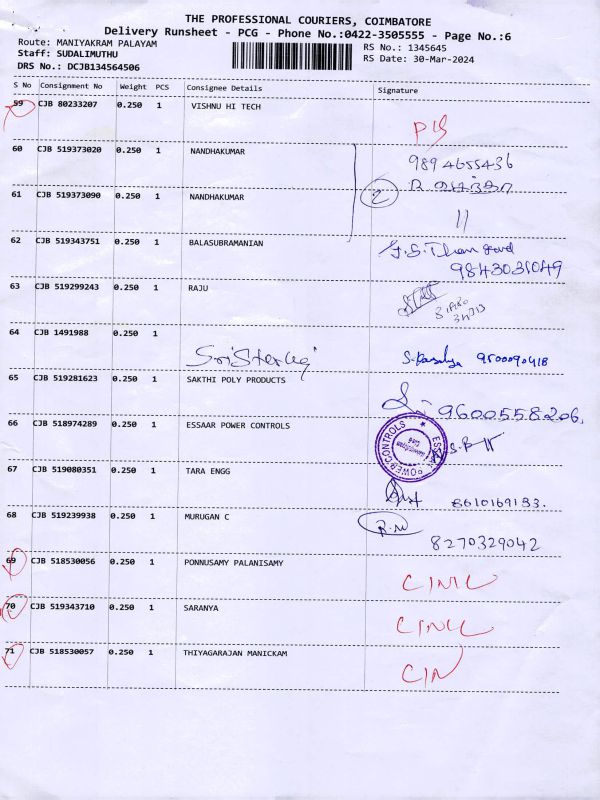 THE PROFESSIONAL COURIERS, COIMBATORE
Delivery Runsheet - PCG - Phone No.:0422-3505555 - Page No.:6
Route: MANIYAKRAM PALAYAM
Staff: SUDALIMUTHU
DRS No.: DCJB134564506
RS No.: 1345645
RS Date: 30-Mar-2024
S No Consignment No Weight PCS Consignee Details Signature
59 CJB 80233207 0.250 1 VISHNU HI TECH
60 CJB 519373020 0.250 1 NANDHAKUMAR
9894655436
61 CJB 519373090 0.250 1 NANDHAKUMAR
2
11
62 CJB 519343751 0.250 1 BALASUBRAMANIAN
9843031049
63 CJB 519299243 0.250 1 RAJU
64 CJB 1491988 0.250 1
65 CJB 519281623 0.250 1 SAKTHI POLY PRODUCTS
9600558206,
66 CJB 518974289 0.250 1 ESSAAR POWER CONTROLS
POWER CONTROLS
67 CJB 519080351 0.250 1 TARA ENGG
68 CJB 519239938 0.250 1 MURUGAN C
R.M
8270329042
69 CJB 518530056 0.250 1 PONNUSAMY PALANISAMY
70 CJB 519343710 0.250 1 SARANYA
71 CJB 518530057 0.250 1 THIYAGARAJAN MANICKAM